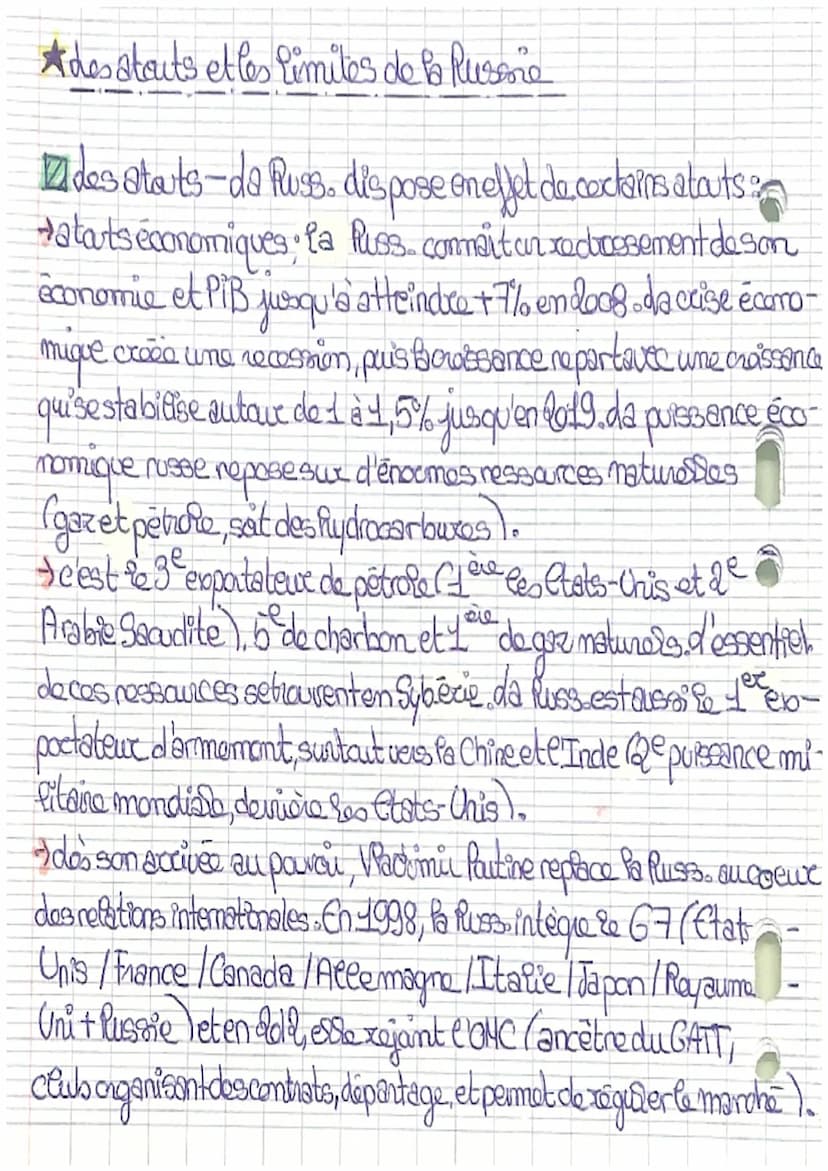 ★ Les atouts et les limites de la Russie
Les atouts - La Russ. dispose en effet de certains atouts :
→ atouts économiques : la Russ. connaît un redressement de son
économie et PiB jusqu'à atteindre +7% en 2008. La crise écono-
mique créea une recession, puis la croissance repart avec une croissance
qui se stabilise autour de 1 à 1,5% jusqu'en 2019. La puissance éco-
nomique russe repose sur d'énormes ressources naturelles
(gaz et pétrole, soit des hydrocarbures).
→ c'est le 3e exportateur de pétrole (1ère les Etats-Unis et 2e
Arabie Saoudite), 5e de charbon et 1ère de gaz naturels. L'essentiel
de ces ressources se trouvent en Sybérie. La Russ. est aussi le 1er ex-
portateur d'armement, surtout vers la Chine et l'Inde (2e puissance mi-
litaire mondiale, derrière les Etats-Unis).
→ dès son arrivée au pouvoir, Vladimir Poutine replace la Russ. au coeur
des relations internationales. En 1998, la Russ. intègre le G7 (Etats-
Unis / France / Canada / Allemagne / Italie / Japon / Royaume-
Uni + Russie) et en 2012, elle rejoint l'OMC (ancêtre du GATT,
club organisant des contrats, départage, et permet de réguler le marché).